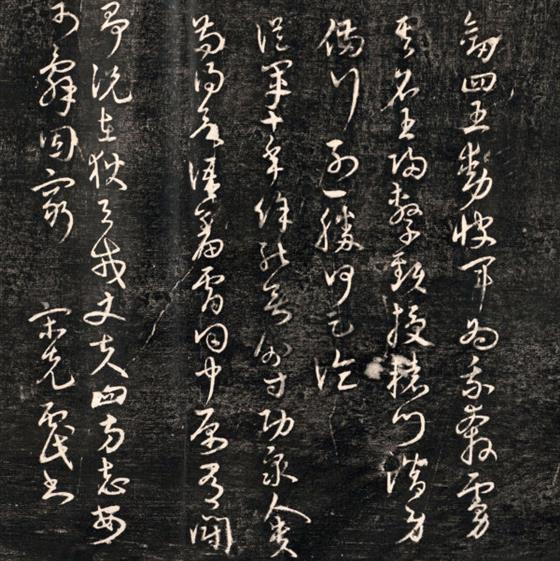 劔四五動彼軍為我奔虜
其名王歸繫頸授轅門潛身
備行列一勝何足論
從軍十年餘能無分寸功眾人貴
苟得欲語羞雷同中原有鬪
爭況在狄與戎丈夫四方志安
可辭固窮 宋克書